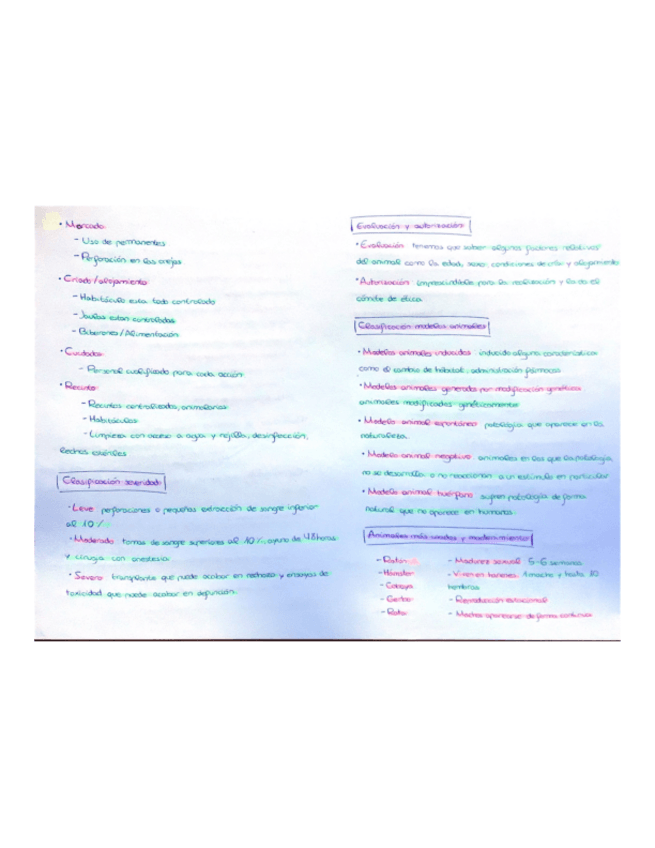 · Marcado
- Uso de permanentes
- Perforación en las orejas
· Criado/alojamiento
- Habitáculo esta todo controlado
- Jaulas estan controladas
- Biberones/Alimentación
· Cuidados
- Personal cualificado para cada acción
· Recinto
- Recintos centralizados, animalarios
- Habitáculos
- Limpieza con acceso a agua y rejilla, desinfección,
lechos estériles
Clasificación severidad
· Leve perforaciones o pequeñas extracción de sangre inferior
al 10%
· Moderado tomas de sangre superiores al 10%, ayuno de 48 horas
y cirugía con anestesia
· Severo transplante que puede acabar en rechazo y ensayos de
toxicidad que puede acabar en defunción.
Evaluación y autorización
· Evaluación tenemos que saber algunos factores relativos
del animal como la edad, sexo, condiciones de cría y alojamiento
· Autorización imprescindible para la realización y la da el
cómite de ética
Clasificación modelos animales
· Modelos animales inducidos inducido alguna característica
como el cambio de hábitat, administración fármacos
· Modelos animales generados por modificación genética
animales modificados genéticamente
· Modelo animal espontáneo patología que aparece en la
naturaleza.
· Modelo animal negativo animales en los que la patología
no se desarrolla o no reaccionan a un estímulo en particular
· Modelo animal huérfano sufren patología de forma
natural que no aparece en humanos.
Animales más usados y mantenimiento
- Ratón - Madurez sexual 5-6 semanas
- Hámster - Viven en harenes 1 macho y hasta 10
- Cobaya hembras
- Gerbo - Reproducción estacional
- Rata - Machos aparearse de forma continua